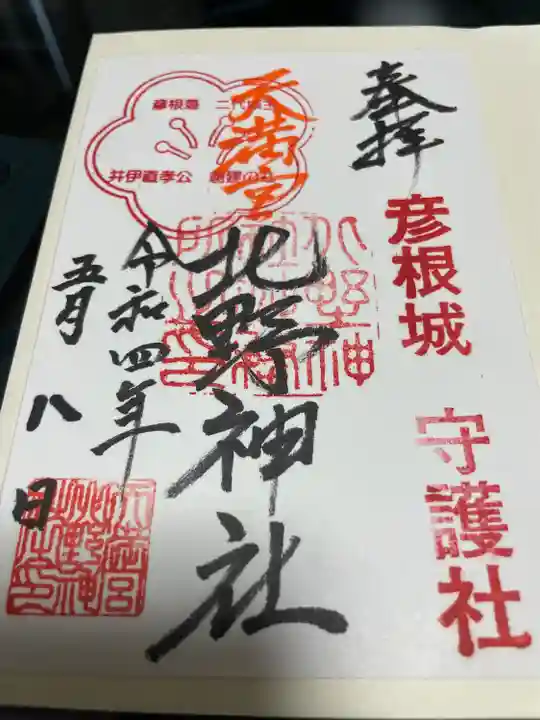 奉拝
彦根城 守護社
天満宮
北野神社
彦根藩 二代
井伊直孝公
令和四年
五月八日